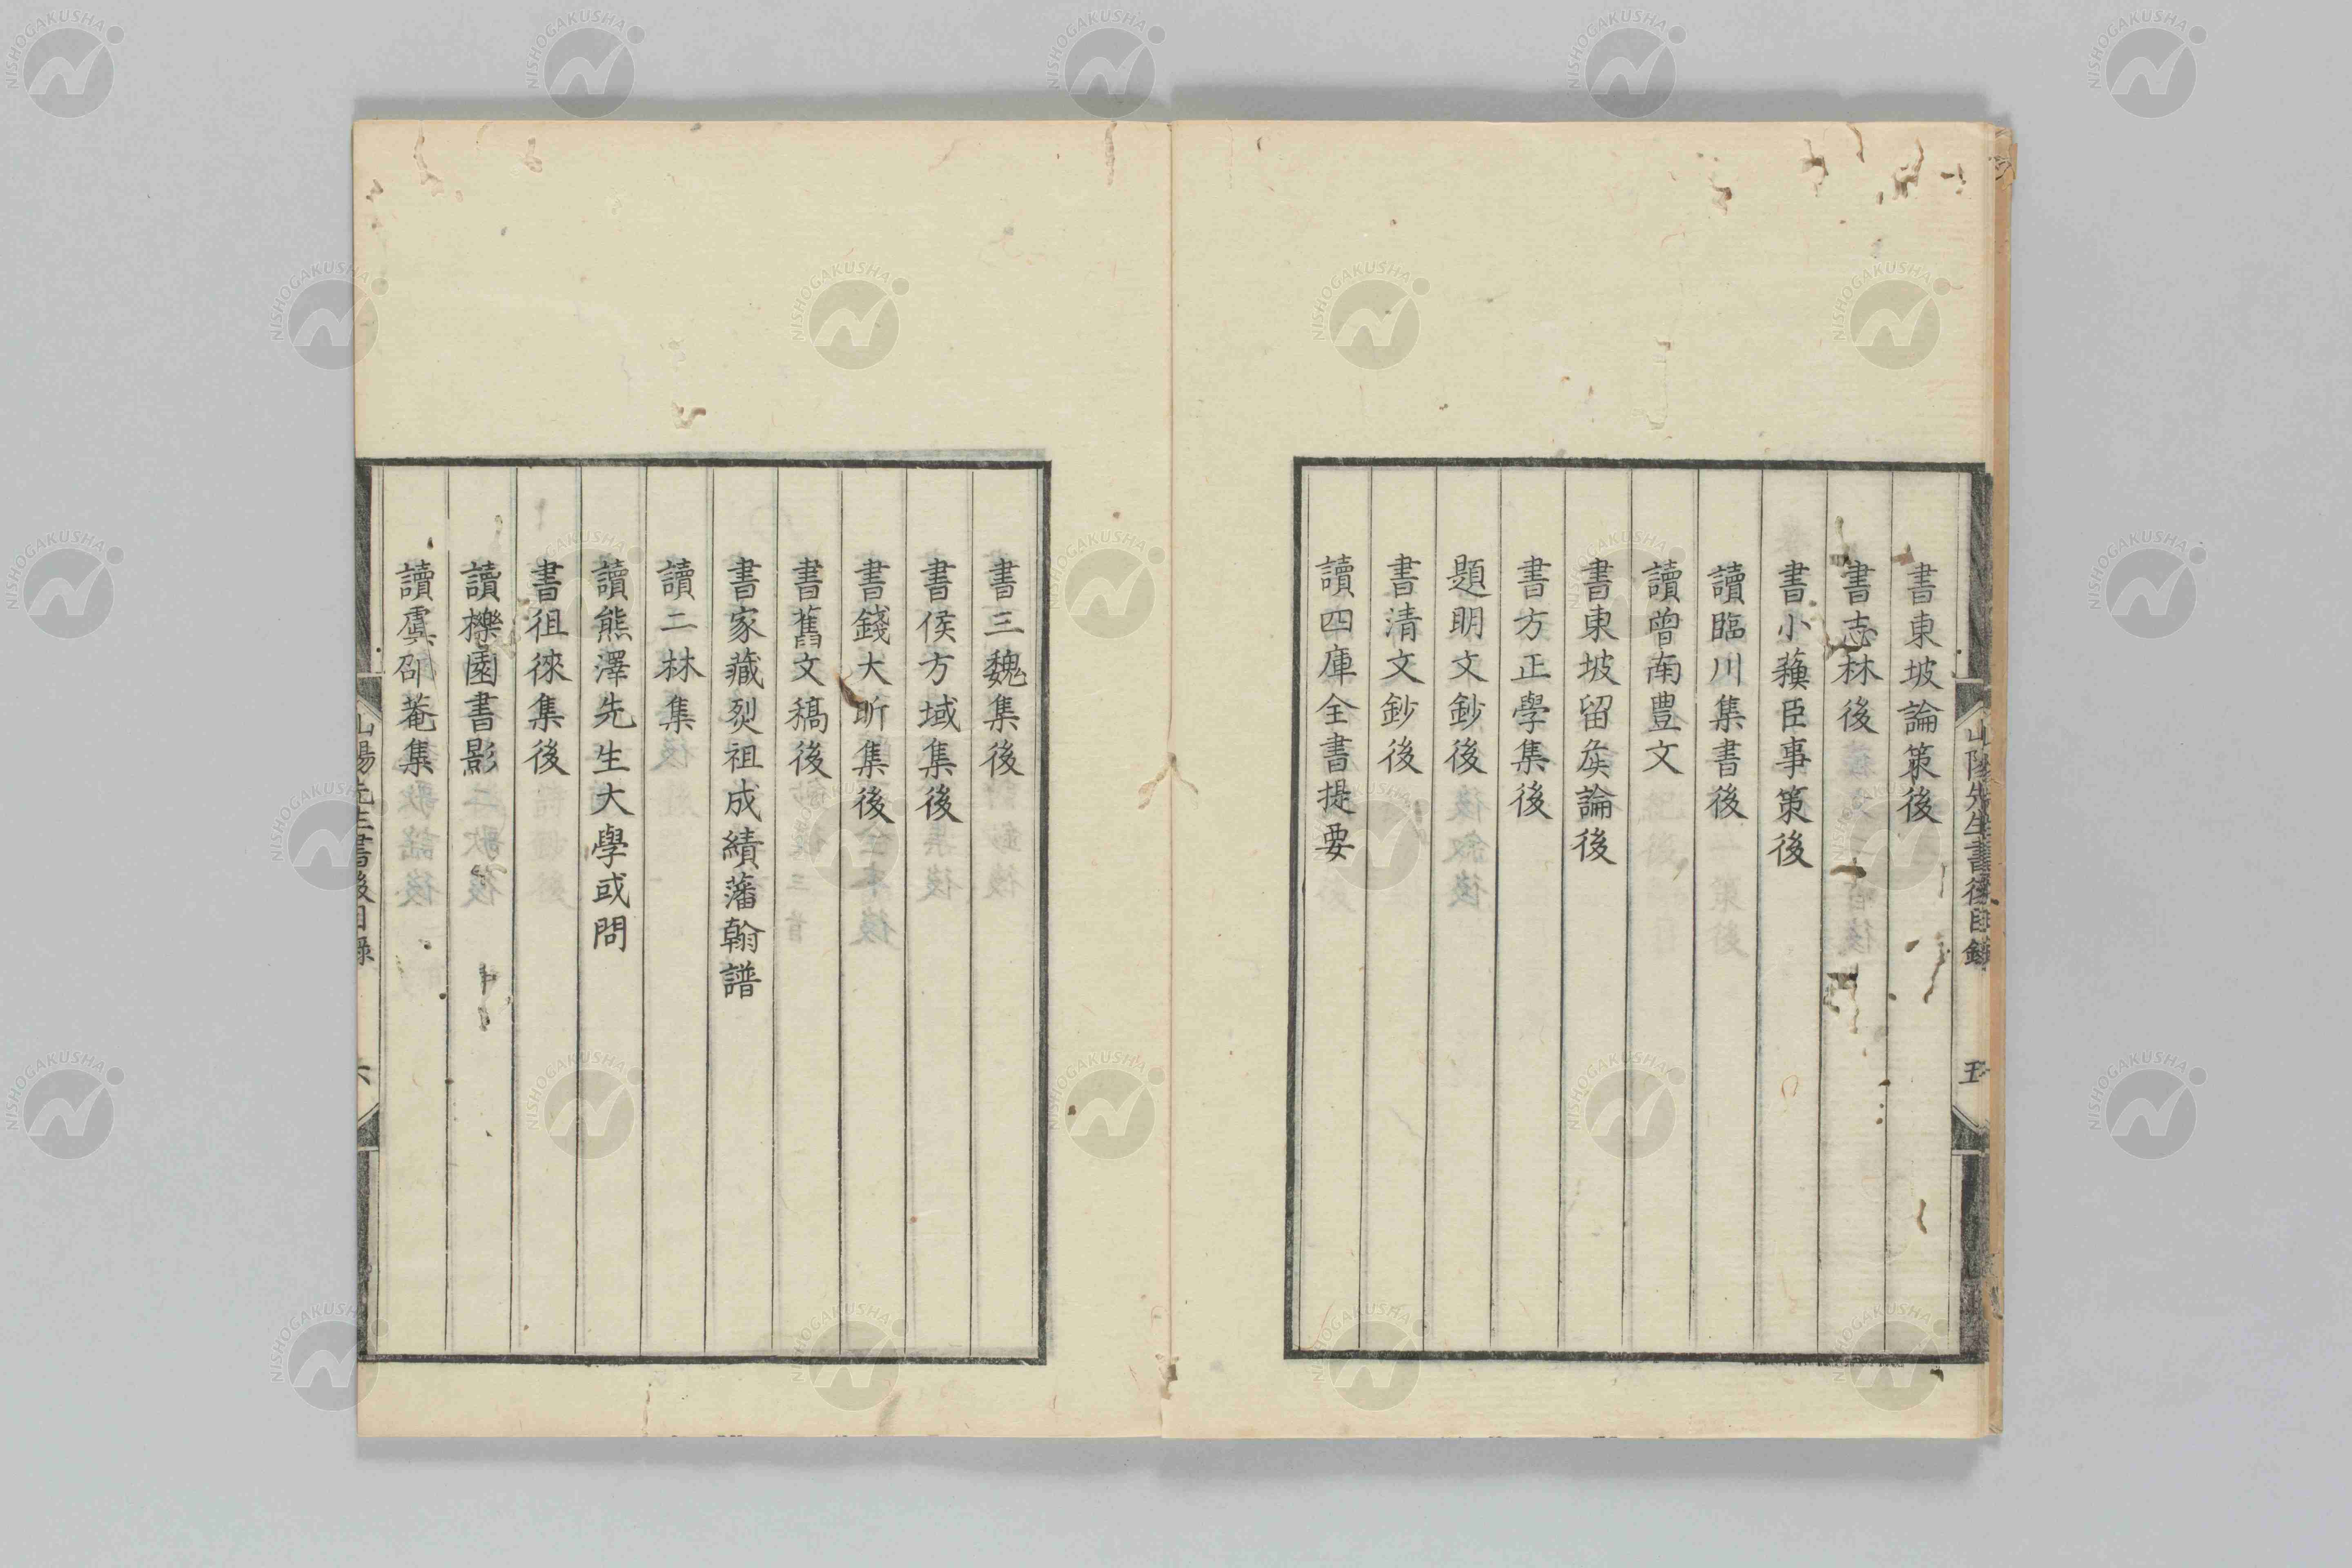 山陽先生書後目錄
五
書東坡論策後
書志林後
書小蘓臣事策後
讀臨川集書後
讀曾南豊文
書東坡留矦論後
書方正學集後
題明文鈔後
書清文鈔後
讀四庫全書提要
書三魏集後
書侯方域集後
書錢大昕集後
書舊文稿後
書家藏烈祖成績藩翰譜
讀二林集
讀熊澤先生大學或問
書徂徠集後
讀櫟園書影
讀虞邵菴集
山陽先生書後目錄
六
NISHOGAKUSHA